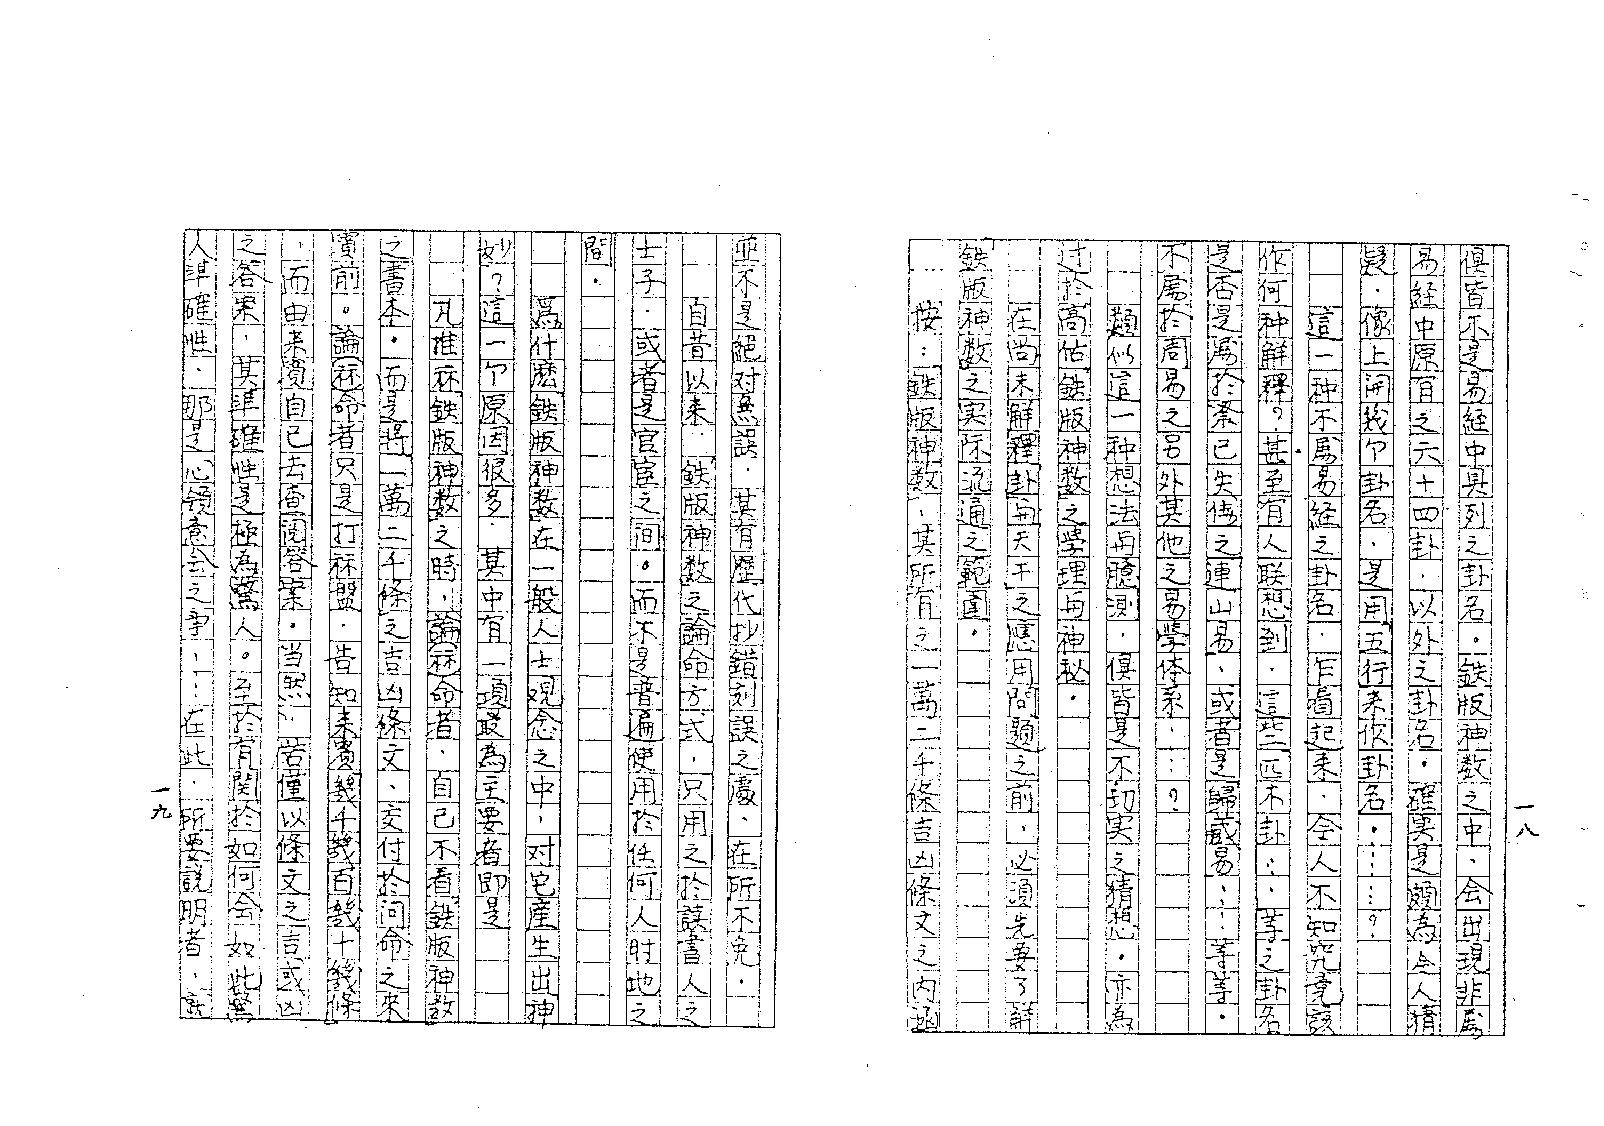 俱皆不是易経中具列之卦名。鉄版神数之中、会出現非屬
易経中原有之六十四卦．以外之卦名。確実是頗為令人猜
疑．像上開幾个卦名．是用五行来作卦名。……？
這一种不屬易経之卦名．乍看起来．令人不知究竟該
作何种解釋？甚至有人联想到．這些二匹不卦…．等之卦名
是否是屬於業已失傳之連山易、或者是歸蔵易……等等。
不屬於周易之另外其他之易學体系……？
類似這一种想法再臆測．俱皆是不切実之猜想。亦為
过於高估鉄版神数之學理再神秘。
在尚未解釋卦再天干之應用問題之前．必須先要了解
鉄版神数之実际流通之範圍。
按：鉄版神数、其所有之一萬二千條吉凶條文之内涵
一八
並不是絕对無誤．其有歷代抄錯刻誤之處、在所不免．
自昔以来．鉄版神数之論命方式．只用之於讀書人之
士子．或者是官宦之间。而不是普遍使用於任何人时地之
間．
為什麽鉄版神数在一般人士观念之中．对它産生出神
妙？這一个原因很多．其中有一項最為主要者即是
凡推祘鉄版神数之時．論祘命者．自己不看鉄版神数
之書本．而是將一萬二千條之吉凶條文、交付於问命之來
賓前。論祘命者只是打祘盤．告知来賓幾千幾百幾十幾條
．而由来賓自己去查閲答案．当然．若僅以條文之吉或凶
之答案．其準確性是極為驚人。至於有関於如何会如此驚
人準確性、那是心領意会之事、…在此．所要説明者．就
一九